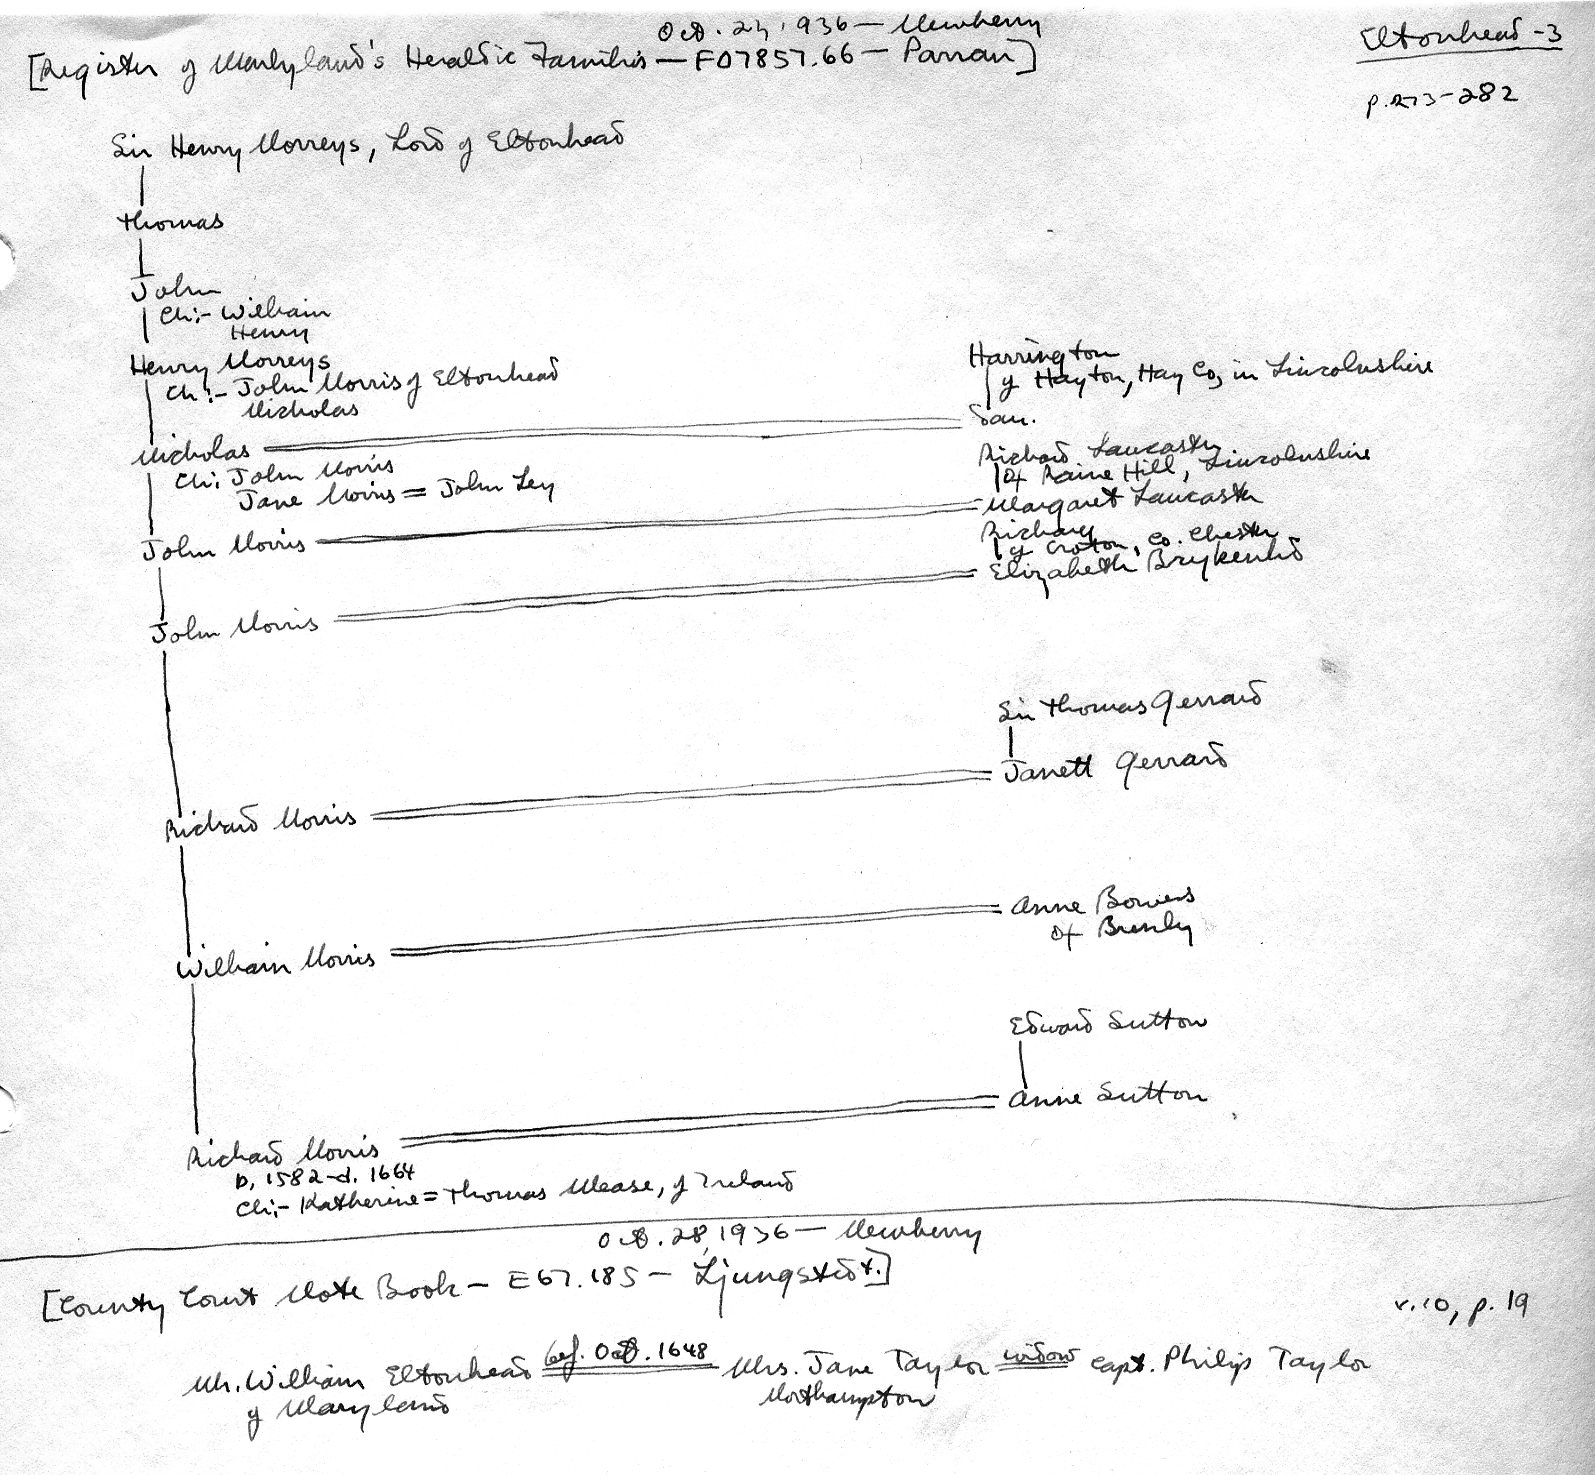 Oct. 27, 1936 — Newberry
[Register of Marlyland's Heraldic Families — F07857.66 — Parran]
Eltonhead - 3
p. 273-282
Sir Henry Norreys, Lord of Eltonhead
Thomas
John
Ch:- William
Henry
Henry Norreys
Ch:- John Norris of Eltonhead
Nicholas
Harrington
of Hayton, Hay Co, in Lincolnshire
Nicholas
dau.
Ch: John Norris
Jane Norris = John Ley
Richard Lancaster
of Raine Hill, Lincolnshire
John Norris
Margaret Lancaster
Richard
of Croton, Co. Chester
John Norris
Elizabeth Brykenhd
Sir Thomas Gerrard
Richard Norris
Janett Gerrard
William Norris
Anne Bowers
of
Edward Sutton
Richard Norris
Anne Sutton
b. 1582-d. 1664
Ch:- Katherine = Thomas Mease, of Ireland
Oct. 28, 1936 — Newberry
[County Court Note Book — E67.185 — Ljungstedt.]
v. 10, p. 19
Mr. William Eltonhead bef. Oct. 1648 Mrs. Jane Taylor widow Capt. Philip Taylor
of Maryland
Northampton